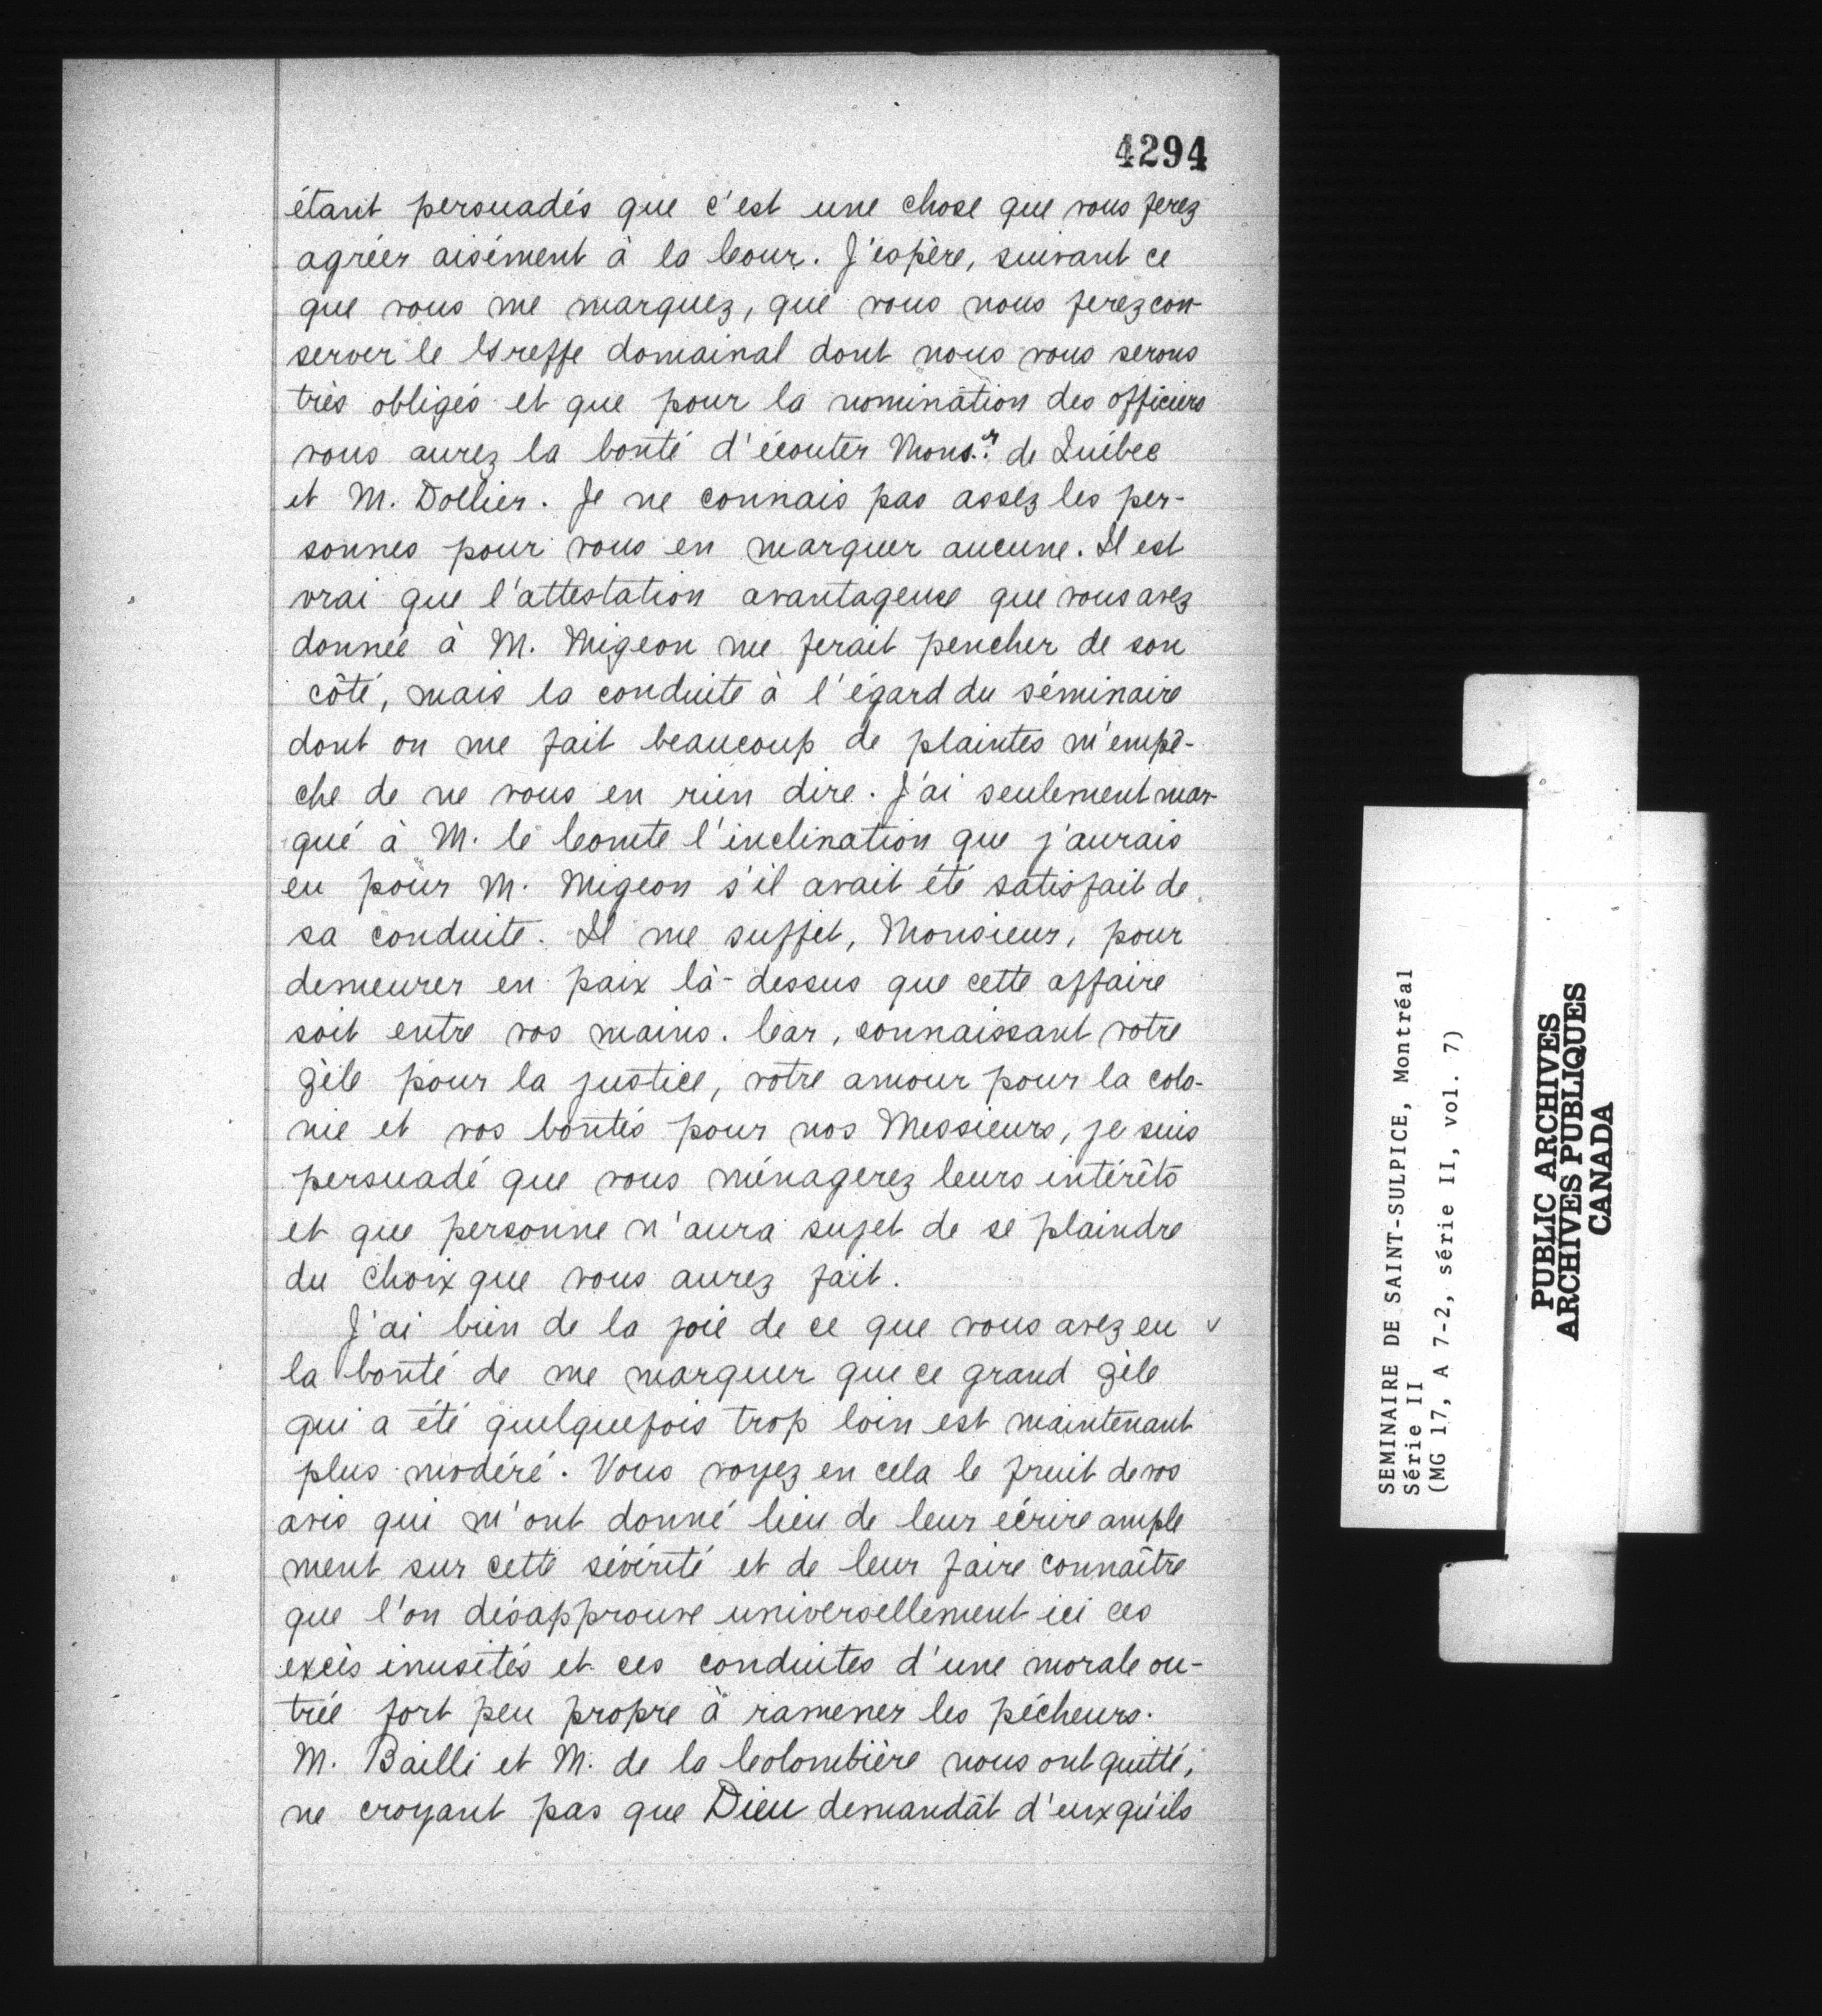 4294
étant persuadés que c'est une chose que vous ferez
agréer aisément à la Cour. J'espère, suivant ce
que vous me marquez, que vous nous ferez con-
server le Greffe domainal dont nous vous serons
très obligés et que pour la nomination des officiers
vous aurez la bonté d'écouter Mons.r de Québec
et M. Dollier. Je ne connais pas assez les per-
sonnes pour vous en marquer aucune. Il est
vrai que l'attestation avantageuse que vous avez
donnée à M. Migeon me ferait pencher de son
côté, mais la conduite à l'égard du séminaire
dont on me fait beaucoup de plaintes m'empê-
che de ne vous en rien dire. J'ai seulement mar-
qué à M. le Comte l'inclination que j'aurais
eu pour M. Migeon s'il avait été satisfait de
sa conduite. Il me suffit, Monsieur, pour
demeurer en paix là-dessus que cette affaire
soit entre vos mains. Car, connaissant votre
zèle pour la justice, votre amour pour la colo-
nie et vos bontés pour nos Messieurs, je suis
persuadé que vous ménagerez leurs intérêts
et que personne n'aura sujet de se plaindre
du choix que vous aurez fait.
J'ai bien de la joie de ce que vous avez eu v
la bonté de me marquer que ce grand zèle
qui a été quelquefois trop loin est maintenant
plus modéré. Vous voyez en cela le fruit de vos
avis qui m'ont donné lieu de leur écrire ample
ment sur cette sévérité et de leur faire connaître
que l'on désapprouve universellement ici ces
excès inusités et ces conduites d'une morale ou-
trée fort peu propre à ramener les pécheurs.
M. Bailli et M. de la Colombière nous ont quitté,
ne croyant pas que Dieu demandât d'eux qu'ils
SEMINAIRE DE SAINT-SULPICE, Montréal
Série II
(MG 17, A 7-2, série II, vol. 7)
PUBLIC ARCHIVES
ARCHIVES PUBLIQUES
CANADA